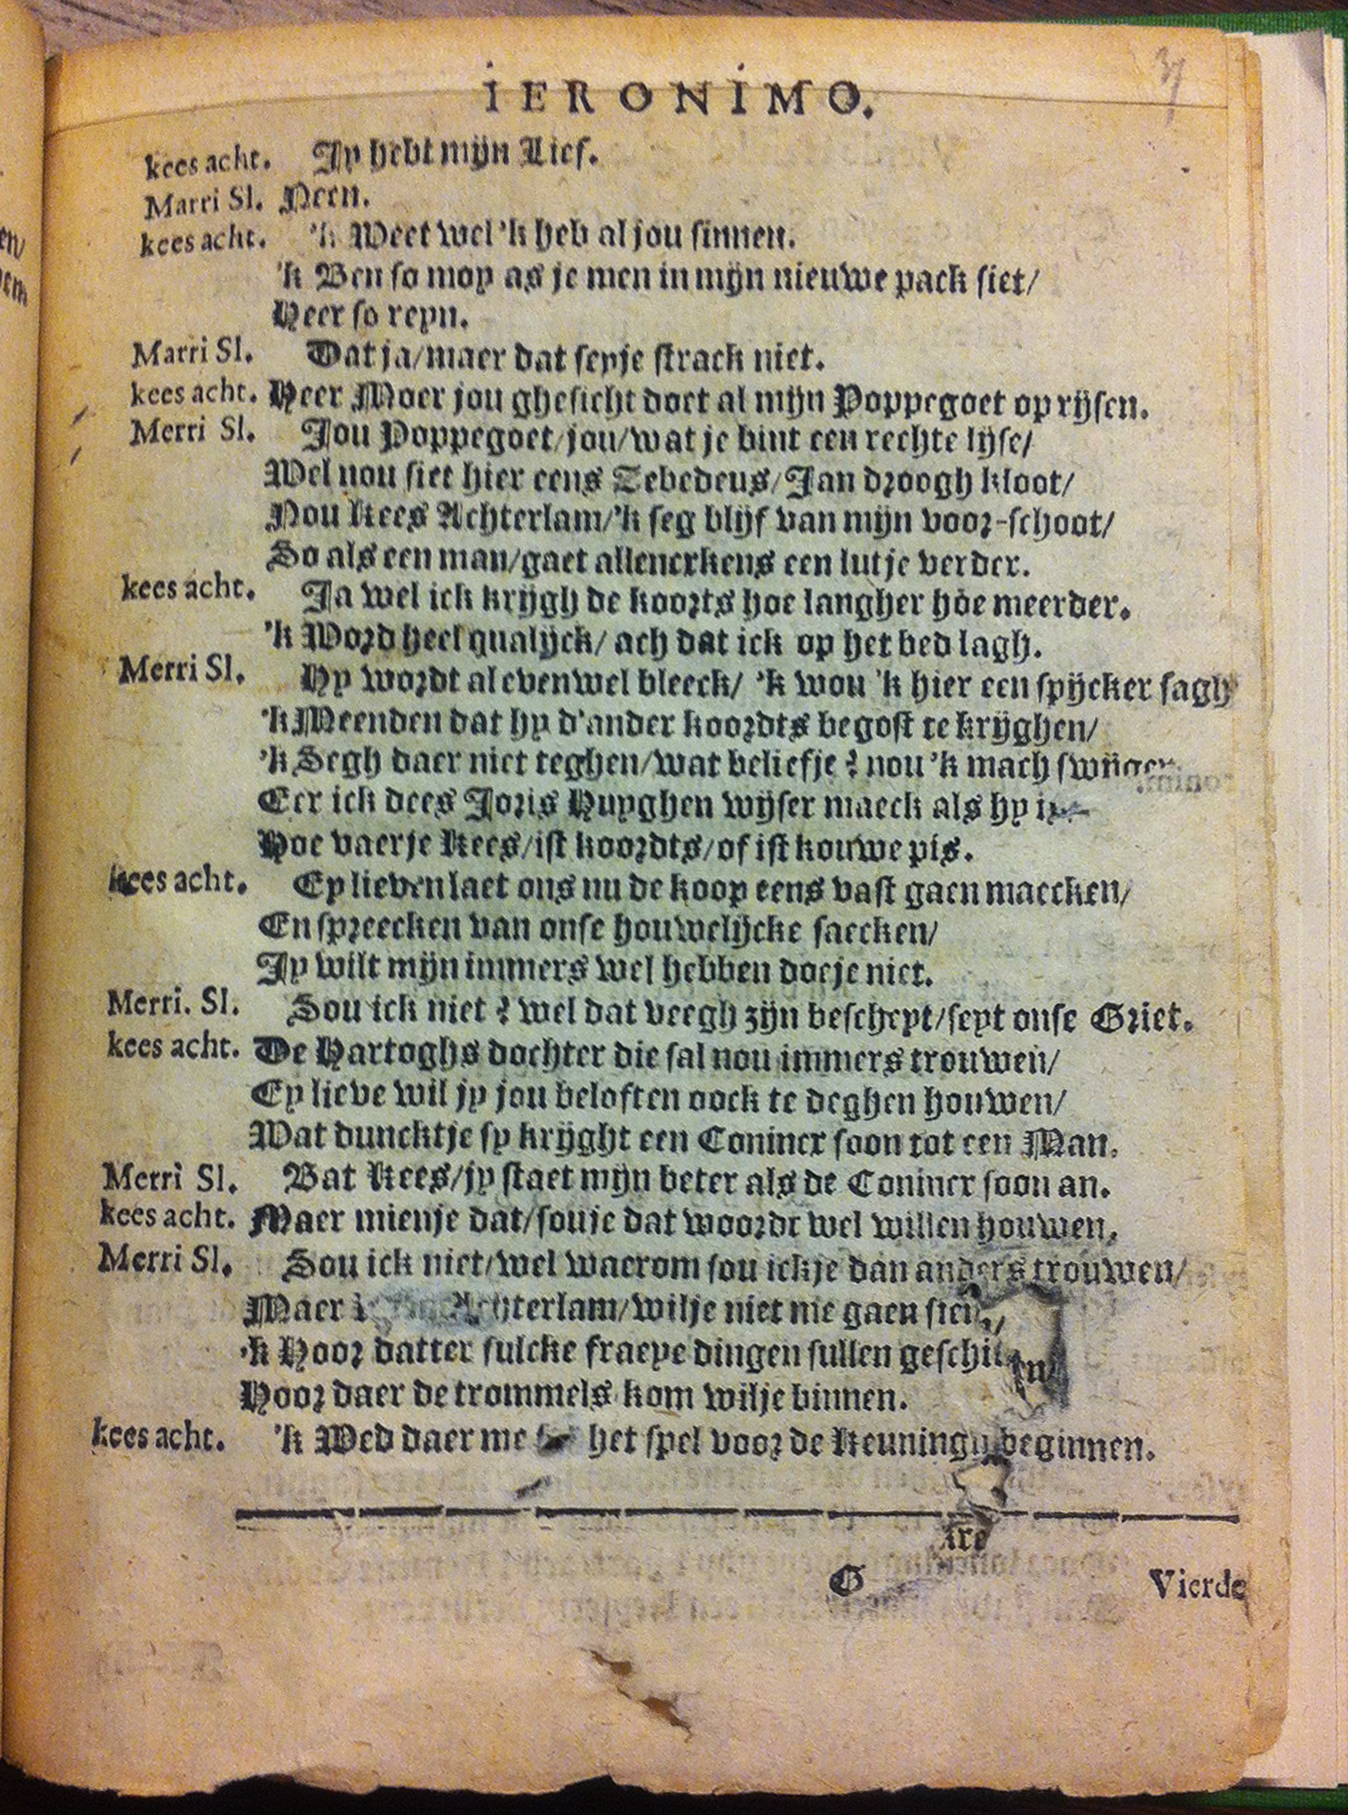 37
IERONIMO.
kees acht. Jy hebt mijn Lief.
Marri Sl. Neen.
kees acht. 'k Weet wel 'k heb al jou sinnen.
'k Ben so moy as je men in mijn nieuwe pack siet/
Heer so reyn.
Marri Sl. Dat ja/maer dat seyje strack niet.
kees acht. Heer Moer jou ghesicht doet al mijn Poppegoet op rijsen.
Merri Sl. Jou Poppegoet/jou/wat je bint een rechte lijse/
Wel nou siet hier eens Zebedeus/Jan droogh kloot/
Nou Kees Achterlam/'k seg blijf van mijn voor-schoot/
So als een man/gaet allenerkens een lutje verder.
kees acht. Ja wel ick krijgh de koorts hoe langher hoe meerder.
'k Word heel qualijck/ ach dat ick op het bed lagh.
Merri Sl. Hy wordt al evenwel bleeck/ 'k wou 'k hier een spijcker sagh
'k Meenden dat hy d'ander koordts begost te krijghen/
'k Segh daer niet teghen/wat beliefje? nou 'k mach
Eer ick dees Joris Huyghen wijser maeck als hy
Hoe vaerje Kees/ist koordts/of ist kouwe pis.
kees acht. Ey lieven laet ons nu de koop eens vast gaen maecken/
En spreecken van onse houwelijcke saecken/
Jy wilt mijn immers wel hebben doeje niet.
Merri. Sl. Sou ick niet? wel dat veegh zijn bescheyt/seyt onse Griet.
kees acht. De Hartoghs dochter die sal nou immers trouwen/
Ey lieve wil jy jou beloften oock te deghen houwen/
Wat duncktje sy krijght een Coninex soon tot een Man.
Merri Sl. Bat Kees/jy staet mijn beter als de Coninex soon an.
kees acht. Maer mienje dat/souje dat woordt wel willen houwen.
Merri Sl. Sou ick niet/wel waerom sou ickje dan anders trouwen/
Maer Achterlam/wilje niet me gaen
'k Hoor datter sulcke fraeye dingen sullen
Hoor daer de trommels kom wilje binnen.
kees acht. 'k Wed daer me het spel voor de Keuningh beginnen.
G
Vierde